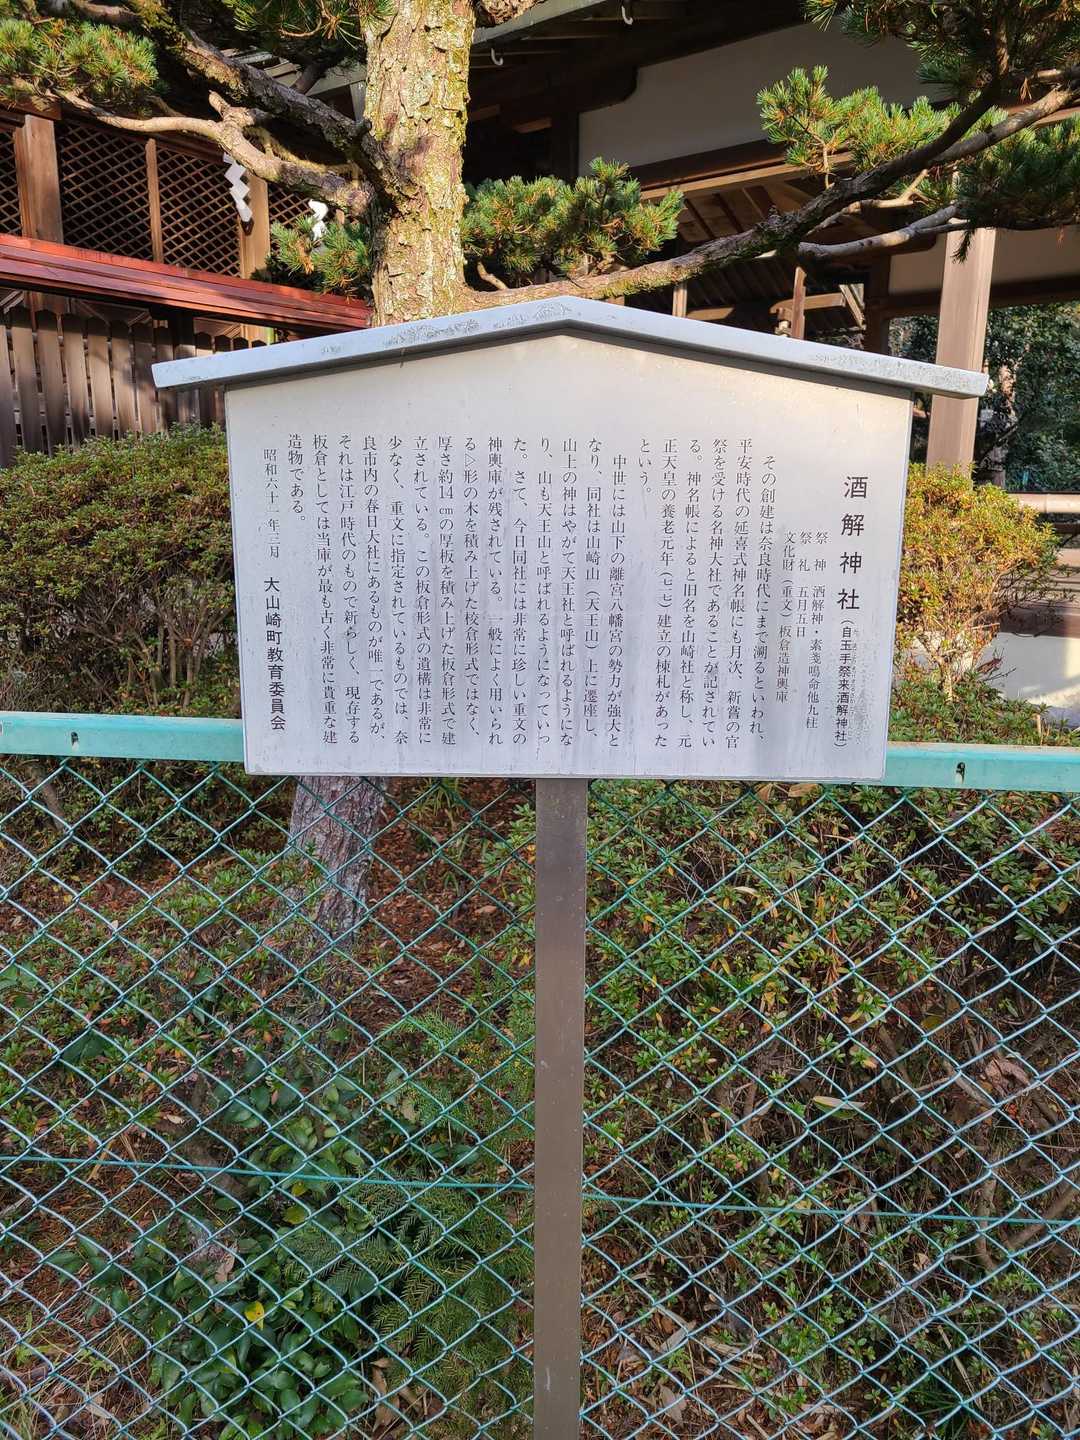 酒解神社（自玉手祭来酒解神社）
祭　神　酒解神・素戔嗚命他九柱
祭　礼　五月五日
文化財（重文）板倉造神輿庫
その創建は奈良時代にまで溯るといわれ、
平安時代の延喜式神名帳にも月次、新嘗の官
祭を受ける名神大社であることが記されてい
る。神名帳によると旧名を山崎社と称し、元
正天皇の養老元年（七一七）建立の棟札があった
という。
中世には山下の離宮八幡宮の勢力が強大と
なり、同社は山崎山（天王山）上に遷座し、
山上の神はやがて天王社と呼ばれるようにな
り、山も天王山と呼ばれるようになっていっ
た。さて、今日同社には非常に珍しい重文の
神輿庫が残されている。一般によく用いられ
る▷形の木を積み上げた校倉形式ではなく、
厚さ約14㎝の厚板を積み上げた板倉形式で建
立されている。この板倉形式の遺構は非常に
少なく、重文に指定されているものでは、奈
良市内の春日大社にあるものが唯一であるが、
それは江戸時代のもので新らしく、現存する
板倉としては当庫が最も古く非常に貴重な建
造物である。
昭和六十一年三月　大山崎町教育委員会